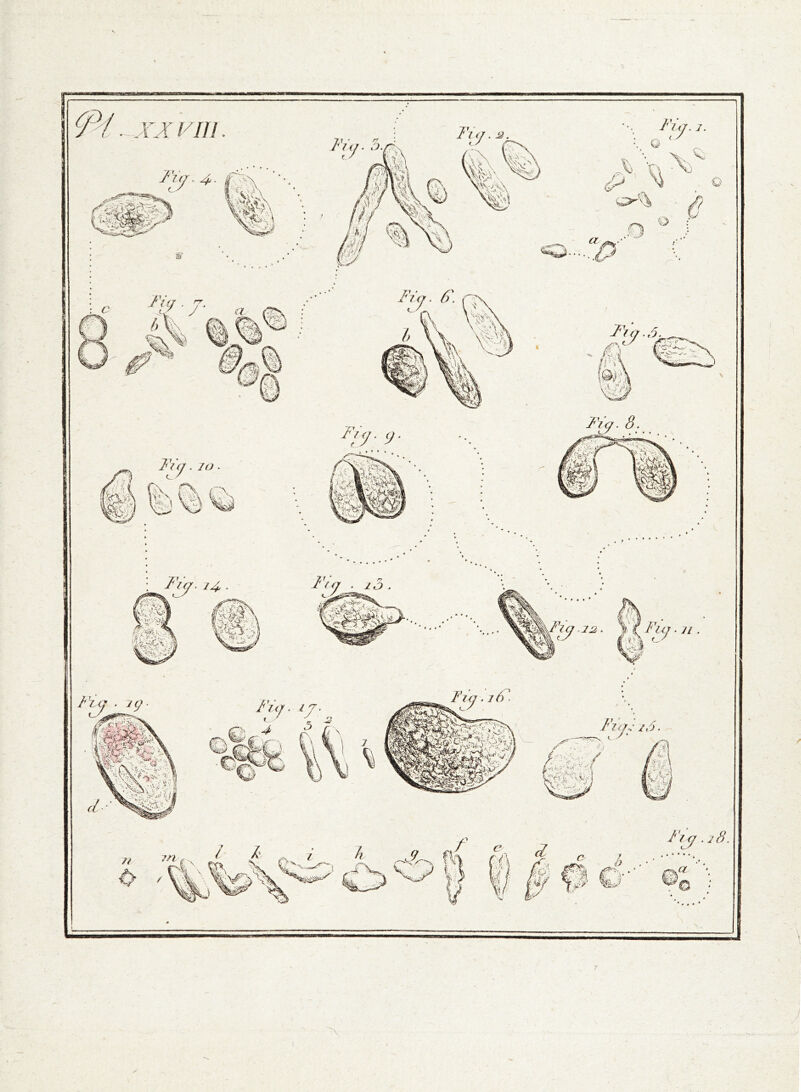 Pl. XXVIII.
Fig. 3. Fig. 2. Fig. 1.
Fig. 4.
a
c Fig. 7. Fig. 6.
b a b Fig. 5.
Fig. 9. Fig. 8.
Fig. 10.
Fig. 14. Fig. 13.
Fig. 12. Fig. 11.
Fig. 19. Fig. 17. Fig. 16.
4 3 2 1 Fig. 15.
d
Fig. 18.
n m l k i h g f e d c b a